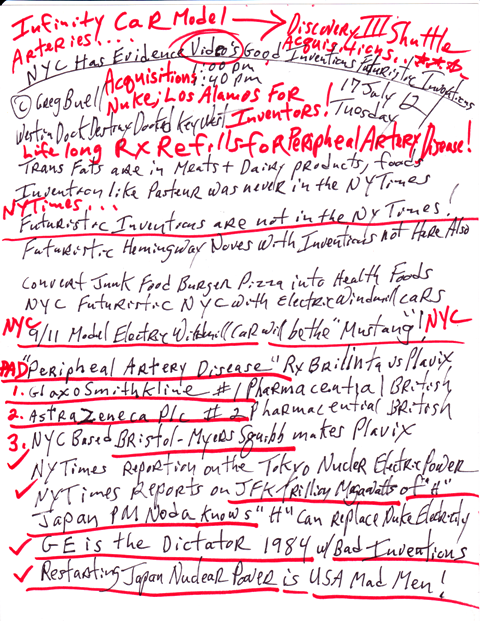 Infinity Car Model → Discovery III Shuttle
Arteries.... Acquisitions..
NYC Has Evidence Video's Good Inventions Futuristic Inventions
Acquisitions :00pm,
:40pm
© Greg Buell Nuke; Los Alamos For 17 July 12
Westin Dock Destroy Docked Key West Inventors! Tuesday
Life long Rx Refills for Peripheal Artery Disease!
Trans Fats are in Meats + Dairy products, foods
Invention like Pasteur was never in the NYTimes
NYTimes...
Futuristic Inventions are not in the Ny Times!
Futuristic Hemingway Noves With Inventions not Here Also
Convent Junk Food Burger Pizza into Health Foods
NYC Futuristic NYC with Electric Windmill cars
NYC 9/11 Model Electric Windmill Car will be the "Mustang"! NYC
PAD "Peripheal Artery Disease" Rx Brilinta vs Plavix
1. GlaxoSmithKline #1 Pharmacential British
2. AstraZeneca Plc #2 Pharmacential British
3. NYC Based Bristol-Myers Squibb makes Plavix
✓ NYTimes Reporting on the Tokyo Nucler Electric Power
✓ NYTimes Reports on JFK trillion Megawatts of "H"
Japan PM Noda knows "H" Can Replace Nuke Electricity
✓ GE is the Dictator 1984 w/ Bad Inventions
✓ Restarting Japan Nuclear Power is USA Mad Men!